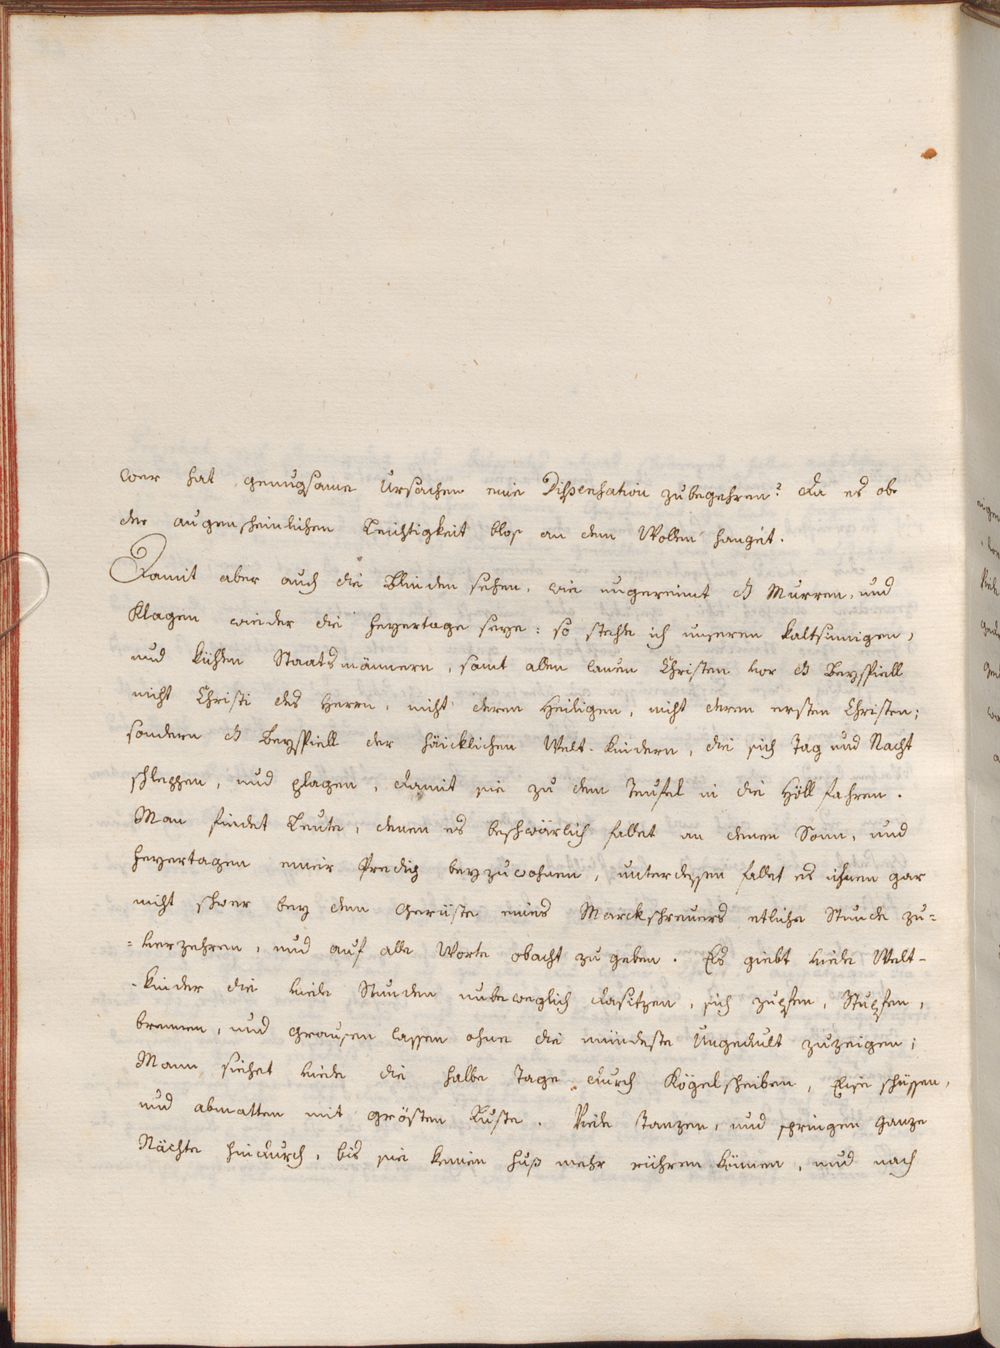 wer hat genugsame Ursachen eine Dispensation zubegehren? da es ob
der augenscheinlichen Leichtigkeit blos an dem Wollen hanget.
Damit aber auch die Blinden sehen, wie ungereimt dz Murren, und
Klagen wieder die feyertage seye: so stehle ich unseren kaltsinnigen,
und kühlen Staatsmännern, samt allen lauen Christen vor dz Beyspiell
nicht Christi des Herrn, nicht deren Heiligen, nicht deren ersten Christen;
sondern dz Beyspiell der häicklichen Welt-kindern, die sich Tag und Nacht
schleppen, und plagen, damit sie zu dem Teufel in die Höll fahren.
Man findet Leute, denen es beschwärlich fallet an denen Sonn, und
feyertagen einer Predig beyzuwohnen, unterdessen fallet es ihnen gar
nicht schwer bey dem Gerüste eines Marckschreyers etliche Stunde zu=
=verzehren, und auf alle Worte obacht zu geben. Es giebt viele Welt-
-kinder die viele Stunden unbeweglich dasitzen, sich zupfen, Stupfen,
brennen, und grausen lassen ohne die mindeste Ungedult zuzeigen;
Mann siehet viele die halbe Tage durch Kögelscheiben, Eisschüssen,
und abmatten mit grösten Luste. Viele Tanzen, und springen ganze
Nächte hindurch, bis sie keinen fuß mehr rühren können, und nach